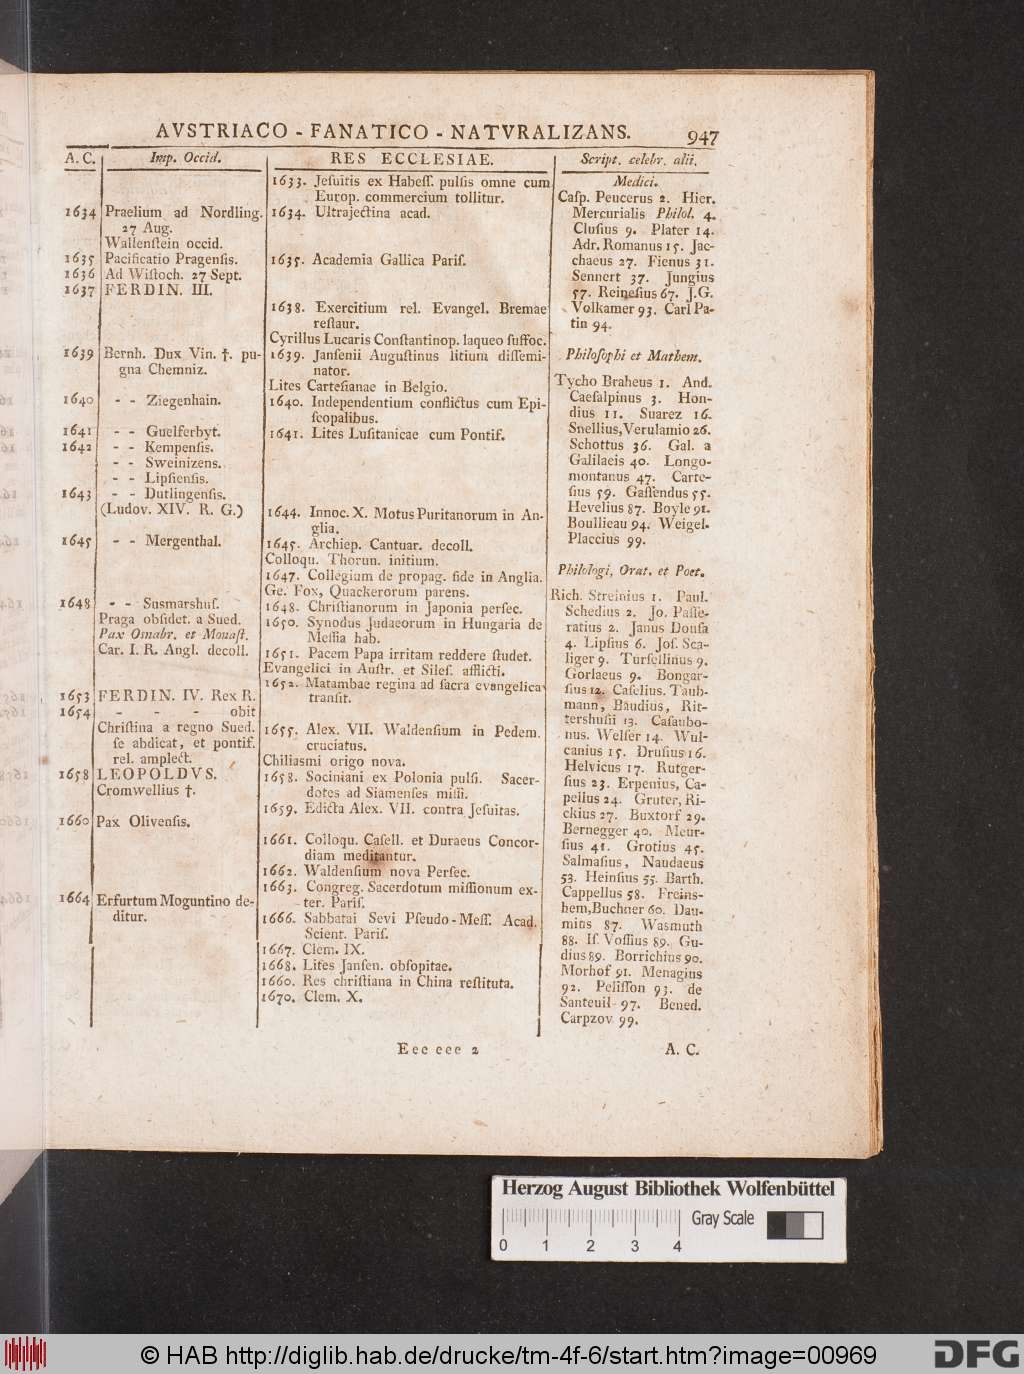 AVSTRIACO - FANATICO - NATVRALIZANS. 947
A. C.
Imp. Occid.
1634 Praelium ad Nordling.
27 Aug.
Wallenſtein occid.
1635 Pacificatio Pragenſis.
1636 Ad Wiſtoch. 27 Sept.
1637 FERDIN. III.
1639 Bernh. Dux Vin. †. pu-
gna Chemniz.
1640 - - Ziegenhain.
1641 - - Guelferbyt.
1642 - - Kempenſis.
- - Sweinizens.
- - Lipſienſis.
1643 - - Dutlingenſis.
(Ludov. XIV. R. G.)
1645 - - Mergenthal.
1648 - - Susmarshuſ.
Praga obſidet. a Sued.
Pax Osnabr. et Monaſt.
Car. I. R. Angl. decoll.
1653 FERDIN. IV. Rex R.
1654 - - - obit
Chriſtina a regno Sued.
ſe abdicat, et pontif.
rel. amplect.
1658 LEOPOLDVS.
Cromwellius †.
1660 Pax Olivenſis.
1664 Erfurtum Moguntino de-
ditur.
RES ECCLESIAE.
1633. Jeſuitis ex Habeſſ. pulſis omne cum
Europ. commercium tollitur.
1634. Ultrajectina acad.
1635. Academia Gallica Pariſ.
1638. Exercitium rel. Evangel. Bremae
reſtaur.
Cyrillus Lucaris Conſtantinop. laqueo ſuffoc.
1639. Janſenii Auguſtinus litium diſſemi-
nator.
Lites Carteſianae in Belgio.
1640. Independentium conflictus cum Epi-
ſcopalibus.
1641. Lites Luſitanicae cum Pontif.
1644. Innoc. X. Motus Puritanorum in An-
glia.
1645. Archiep. Cantuar. decoll.
Colloqu. Thorun. initium.
1647. Collegium de propag. fide in Anglia.
Ge. Fox, Quackerorum parens.
1648. Chriſtianorum in Japonia perſec.
1650. Synodus Judaeorum in Hungaria de
Meſſia hab.
1651. Pacem Papa irritam reddere ſtudet.
Evangelici in Auſtr. et Sileſ. afflicti.
1652. Matambae regina ad ſacra evangelica
tranſit.
1655. Alex. VII. Waldenſium in Pedem.
cruciatus.
Chiliasmi origo nova.
1658. Sociniani ex Polonia pulſi. Sacer-
dotes ad Siamenſes miſſi.
1659. Edicta Alex. VII. contra Jeſuitas.
1661. Colloqu. Caſell. et Duraeus Concor-
diam meditantur.
1662. Waldenſium nova Perſec.
1663. Congreg. Sacerdotum miſſionum ex-
ter. Pariſ.
1666. Sabbatai Sevi Pſeudo-Meſſ. Acad.
Scient. Pariſ.
1667. Clem. IX.
1668. Lites Janſen. obſopitae.
1660. Res chriſtiana in China reſtituta.
1670. Clem. X.
Script. celebr. alii.
Medici.
Caſp. Peucerus 2. Hier.
Mercurialis Philoſ. 4.
Cluſius 9. Plater 14.
Adr. Romanus 15. Jac-
chaeus 27. Fienus 31.
Sennert 37. Jungius
57. Reineſius 67. J.G.
Volkamer 93. Carl Pa-
tin 94.
Philoſophi et Mathem.
Tycho Braheus 1. And.
Caeſalpinus 3. Hon-
dius 11. Suarez 16.
Snellius, Verulamio 26.
Schottus 36. Gal. a
Galilaeis 40. Longo-
montanus 47. Carte-
ſius 59. Gaſſendus 55.
Hevelius 87. Boyle 91.
Boullieau 94. Weigel.
Placcius 99.
Philologi, Orat. et Poet.
Rich. Streinius 1. Paul.
Schedius 2. Jo. Paſſe-
ratius 2. Janus Douſa
4. Lipſius 6. Joſ. Sca-
liger 9. Turſellinus 9.
Gorlaeus 9. Bongar-
ſius 12. Caſelius. Taub-
mann, Baudius, Rit-
tershuſii 13. Caſaubo-
nus. Welſer 14. Wul-
canius 15. Druſius 16.
Helvicus 17. Rutger-
ſius 23. Erpenius, Ca-
pellus 24. Gruter, Ri-
ckius 27. Buxtorf 29.
Bernegger 40. Meur-
ſius 41. Grotius 45.
Salmaſius, Naudaeus
53. Heinſius 55. Barth.
Cappellus 58. Freins-
hem, Buchner 60. Dau-
mins 87. Wasmuth
88. Iſ. Voſſius 89. Gu-
dius 89. Borrichius 90.
Morhof 91. Menagius
92. Peliſſon 93. de
Santeuil 97. Bened.
Carpzov 99.
Eee eee 2
A. C.
Herzog August Bibliothek Wolfenbüttel
0 1 2 3 4
Gray Scale
© HAB http://diglib.hab.de/drucke/tm-4f-6/start.htm?image=00969
DFG